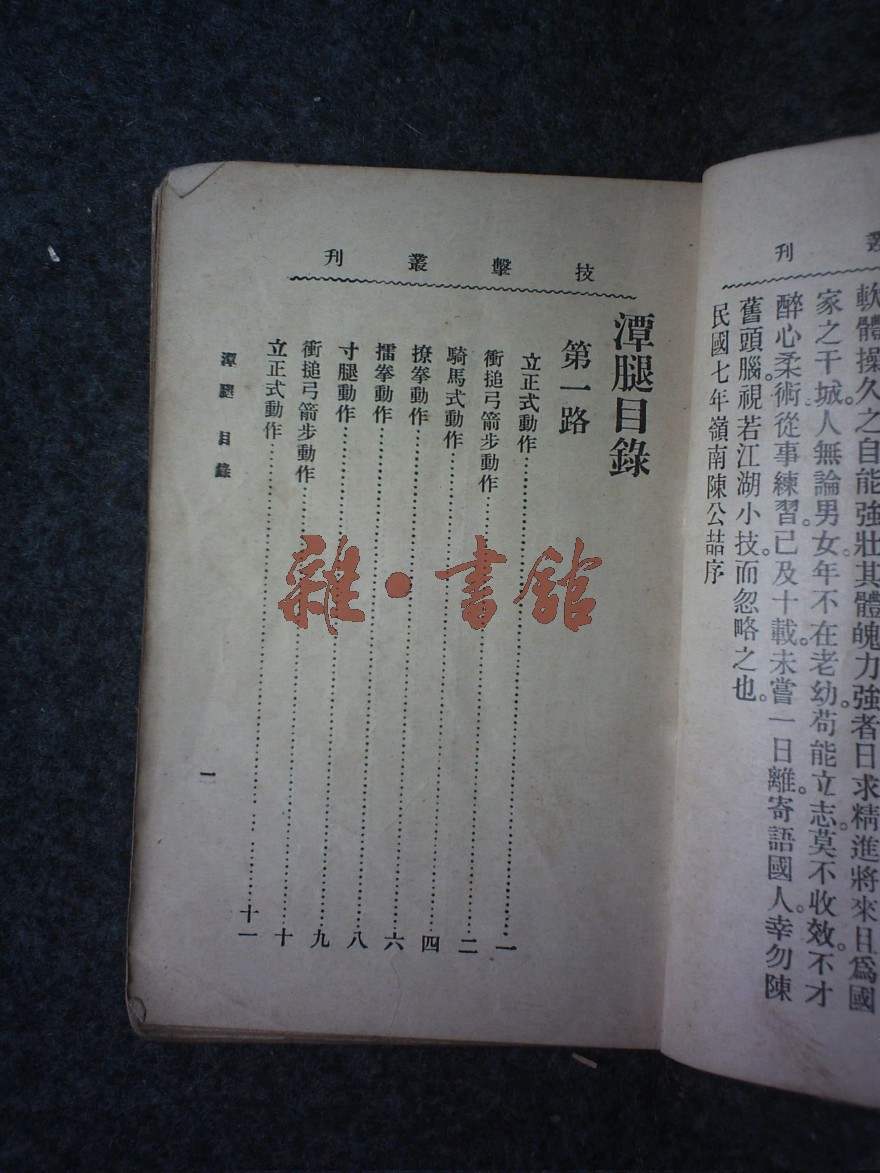 叢刊
軟體操久之自能強壯其體魄力強者日求精進將來且爲國
家之干城人無論男女年不在老幼苟能立志莫不收效不才
醉心柔術從事練習。已及十載未嘗一日離。寄語國人。幸勿陳
舊頭腦。視若江湖小技。而忽略之也。
民國七年嶺南陳公喆序
技擊叢刊
潭腿目錄
第一路
立正式動作……一
衝搥弓箭步動作……二
騎馬式動作……四
撩拳動作……六
擂拳動作……八
寸腿動作……九
衝搥弓箭步動作……十
立正式動作……十一
潭腿目錄
一
雜·書館